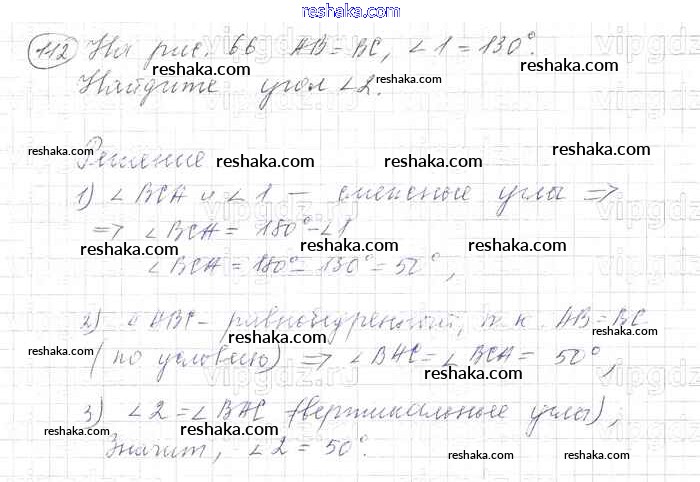 reshaka.com
112 На рис. 66 AB = BC, ∠1 = 130°.
reshaka.com reshaka.com reshaka.com
Найдите угол ∠2.
reshaka.com
Решение
reshaka.com reshaka.com reshaka.com reshaka.com
1) ∠BCA и ∠1 — смежные углы ⇒
⇒ ∠BCA = 180° - ∠1
reshaka.com reshaka.com reshaka.com
∠BCA = 180° - 130° = 50°,
2) △ABC - равнобедренный, т.к. AB = BC
reshaka.com reshaka.com reshaka.com
(по условию) ⇒ ∠BAC = ∠BCA = 50°,
reshaka.com
3) ∠2 = ∠BAC (вертикальные углы),
reshaka.com reshaka.com reshaka.com
Значит, ∠2 = 50°.